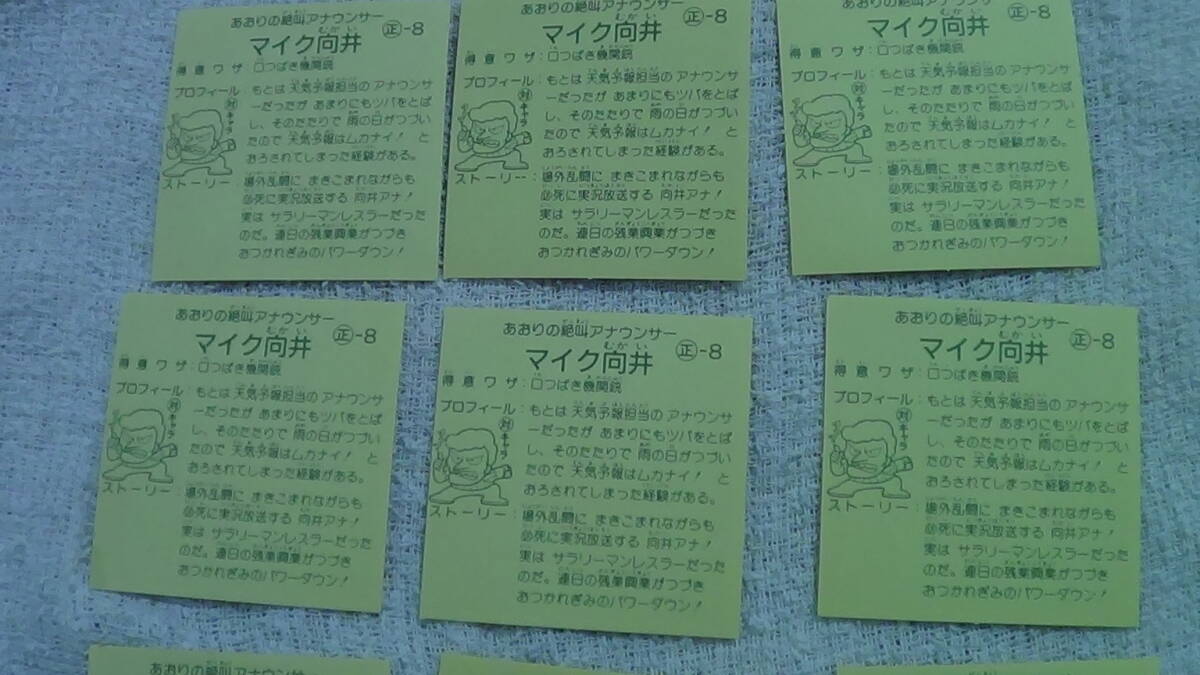 あおりの絶叫アナウンサー
マイク向井 正-8
得意ワザ：口つばき機関銃
プロフィール：もとは 天気予報担当の アナウンサ
ーだったが あまりにもツバをとば
し、そのたたりで 雨の日がつづい
たので 天気予報はムカナイ！ と
おろされてしまった経験がある。
対キャラ
ストーリー：場外乱闘に まきこまれながらも
必死に実況放送する 向井アナ！
実は サラリーマンレスラーだった
のだ。連日の残業興業がつづき
おつかれぎみのパワーダウン！
あおりの絶叫アナウンサー
マイク向井 正-8
得意ワザ：口つばき機関銃
プロフィール：もとは 天気予報担当の アナウンサ
ーだったが あまりにもツバをとば
し、そのたたりで 雨の日がつづい
たので 天気予報はムカナイ！ と
おろされてしまった経験がある。
対キャラ
ストーリー：場外乱闘に まきこまれながらも
必死に実況放送する 向井アナ！
実は サラリーマンレスラーだった
のだ。連日の残業興業がつづき
おつかれぎみのパワーダウン！
あおりの絶叫アナウンサー
マイク向井 正-8
得意ワザ：口つばき機関銃
プロフィール：もとは 天気予報担当の アナウンサ
ーだったが あまりにもツバをとば
し、そのたたりで 雨の日がつづい
たので 天気予報はムカナイ！ と
おろされてしまった経験がある。
対キャラ
ストーリー：場外乱闘に まきこまれながらも
必死に実況放送する 向井アナ！
実は サラリーマンレスラーだった
のだ。連日の残業興業がつづき
おつかれぎみのパワーダウン！
あおりの絶叫アナウンサー
マイク向井 正-8
得意ワザ：口つばき機関銃
プロフィール：もとは 天気予報担当の アナウンサ
ーだったが あまりにもツバをとば
し、そのたたりで 雨の日がつづい
たので 天気予報はムカナイ！ と
おろされてしまった経験がある。
対キャラ
ストーリー：場外乱闘に まきこまれながらも
必死に実況放送する 向井アナ！
実は サラリーマンレスラーだった
のだ。連日の残業興業がつづき
おつかれぎみのパワーダウン！
あおりの絶叫アナウンサー
マイク向井 正-8
得意ワザ：口つばき機関銃
プロフィール：もとは 天気予報担当の アナウンサ
ーだったが あまりにもツバをとば
し、そのたたりで 雨の日がつづい
たので 天気予報はムカナイ！ と
おろされてしまった経験がある。
対キャラ
ストーリー：場外乱闘に まきこまれながらも
必死に実況放送する 向井アナ！
実は サラリーマンレスラーだった
のだ。連日の残業興業がつづき
おつかれぎみのパワーダウン！
あおりの絶叫アナウンサー
マイク向井 正-8
得意ワザ：口つばき機関銃
プロフィール：もとは 天気予報担当の アナウンサ
ーだったが あまりにもツバをとば
し、そのたたりで 雨の日がつづい
たので 天気予報はムカナイ！ と
おろされてしまった経験がある。
対キャラ
ストーリー：場外乱闘に まきこまれながらも
必死に実況放送する 向井アナ！
実は サラリーマンレスラーだった
のだ。連日の残業興業がつづき
おつかれぎみのパワーダウン！
あおりの絶叫アナウンサー